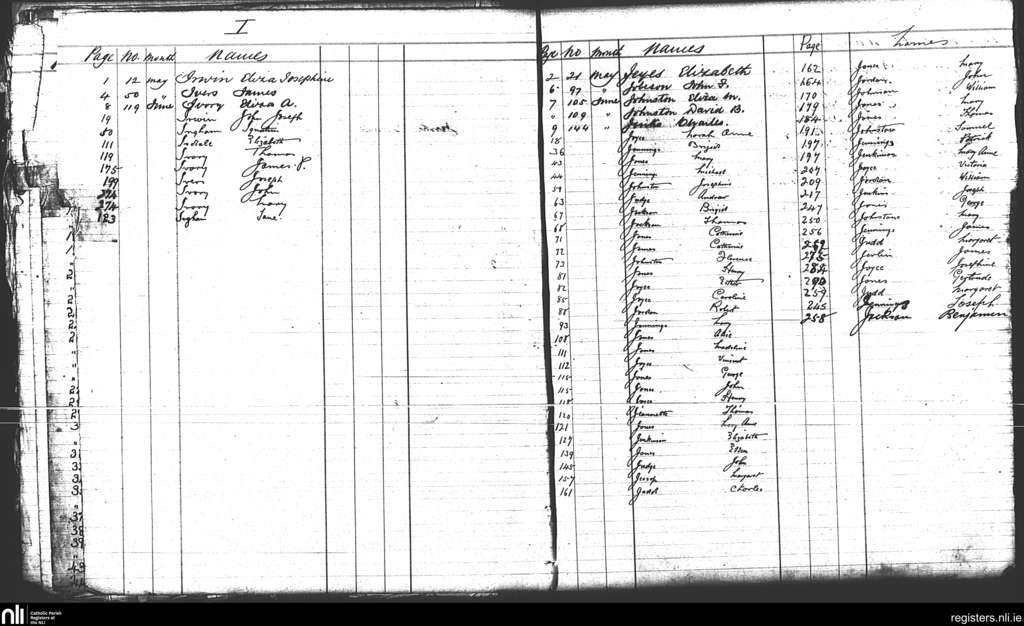 I
Page No Month Names
1 12 May Irwin Eliza Josephine
4 50 " Ivers James
8 119 June Ivory Eliza A.
19 Irwin John Joseph
50 Ingham
111 Elizabeth
119 Ivory Thomas
175 Ivory James P.
199 Ivers Joseph
Ivory John
274 Ivory Mary
123 Ingham Jane
Page No Month Names
2 21 May Joyes Elizabeth
6 97 " Johnson John F.
7 105 June Johnston Eliza M.
" 109 " Johnston David B.
9 144 " Jenks Charles
18 Joyce Norah Anne
36 Jennings Brigid
43 Jones Mary
44 Jennings Michael
59 Johnston Josephine
63 Judge Andrew
67 Jackson Brigid
68 Jackson Thomas
71 Jones Catherine
72 Jones Catherine
73 Johnston Florence
81 Jones Henry
82 Joyce Esther
85 Joyce Caroline
88 Jordan Robert
93 Jennings Mary
108 Jones
111 Jones Madeline
112 Joyce Vincent
115 Jones George
115 Jones John
118 Joyce Henry
120 Jeannette Thomas
121 Jones Mary Anne
127 Jenkinson Elizabeth
139 Jones Ellen
145 Judge John
157 Joseph Margaret
161 Judd Charles
Page Names
162 Jones Mary
164 Jordan John
170 Johnson William
179 Jones Mary
184 Jones Thomas
191 Johnston Samuel
197 Jennings Patrick
197 Jenkinson Mary Anne
207 Joyce Victoria
209 Jordan William
217 Jenkins Joseph
247 George
250 Johnstone Mary
256 Jennings James
Judd Margaret
James
284 Joyce Josephine
290 Jones Gertrude
259 Judd Margaret
245 Jennings Joseph
258 Jackson Benjamin
nli
Catholic Parish
Registers at
the NLI
registers.nli.ie